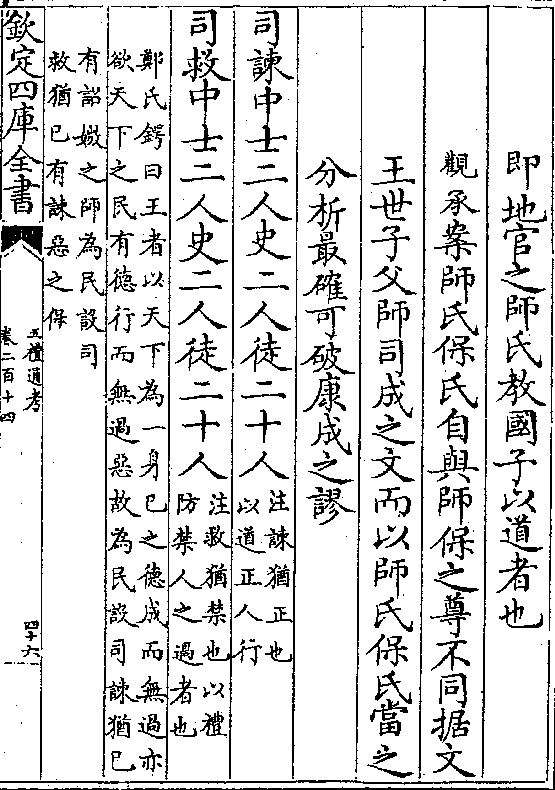 即地官之師氏教國子以道者也
觀承案師氏保氏自與師保之尊不同据文
王世子父師司成之文而以師氏保氏當之
分析最確可破康成之謬
司諫中士二人史二人徒二十人
注諫猶正也
以道正人行
司救中士二人史二人徒二十人
注救猶禁也以禮
防禁人之過者也
鄭氏鍔曰王者以天下為一身已之德成而無過亦
欲天下之民有德行而無過惡故為民設司諫猶已
有詔媺之師為民設司
救猶已有諫惡之保
欽定四庫全書
五禮通考
卷二百十四
四十六